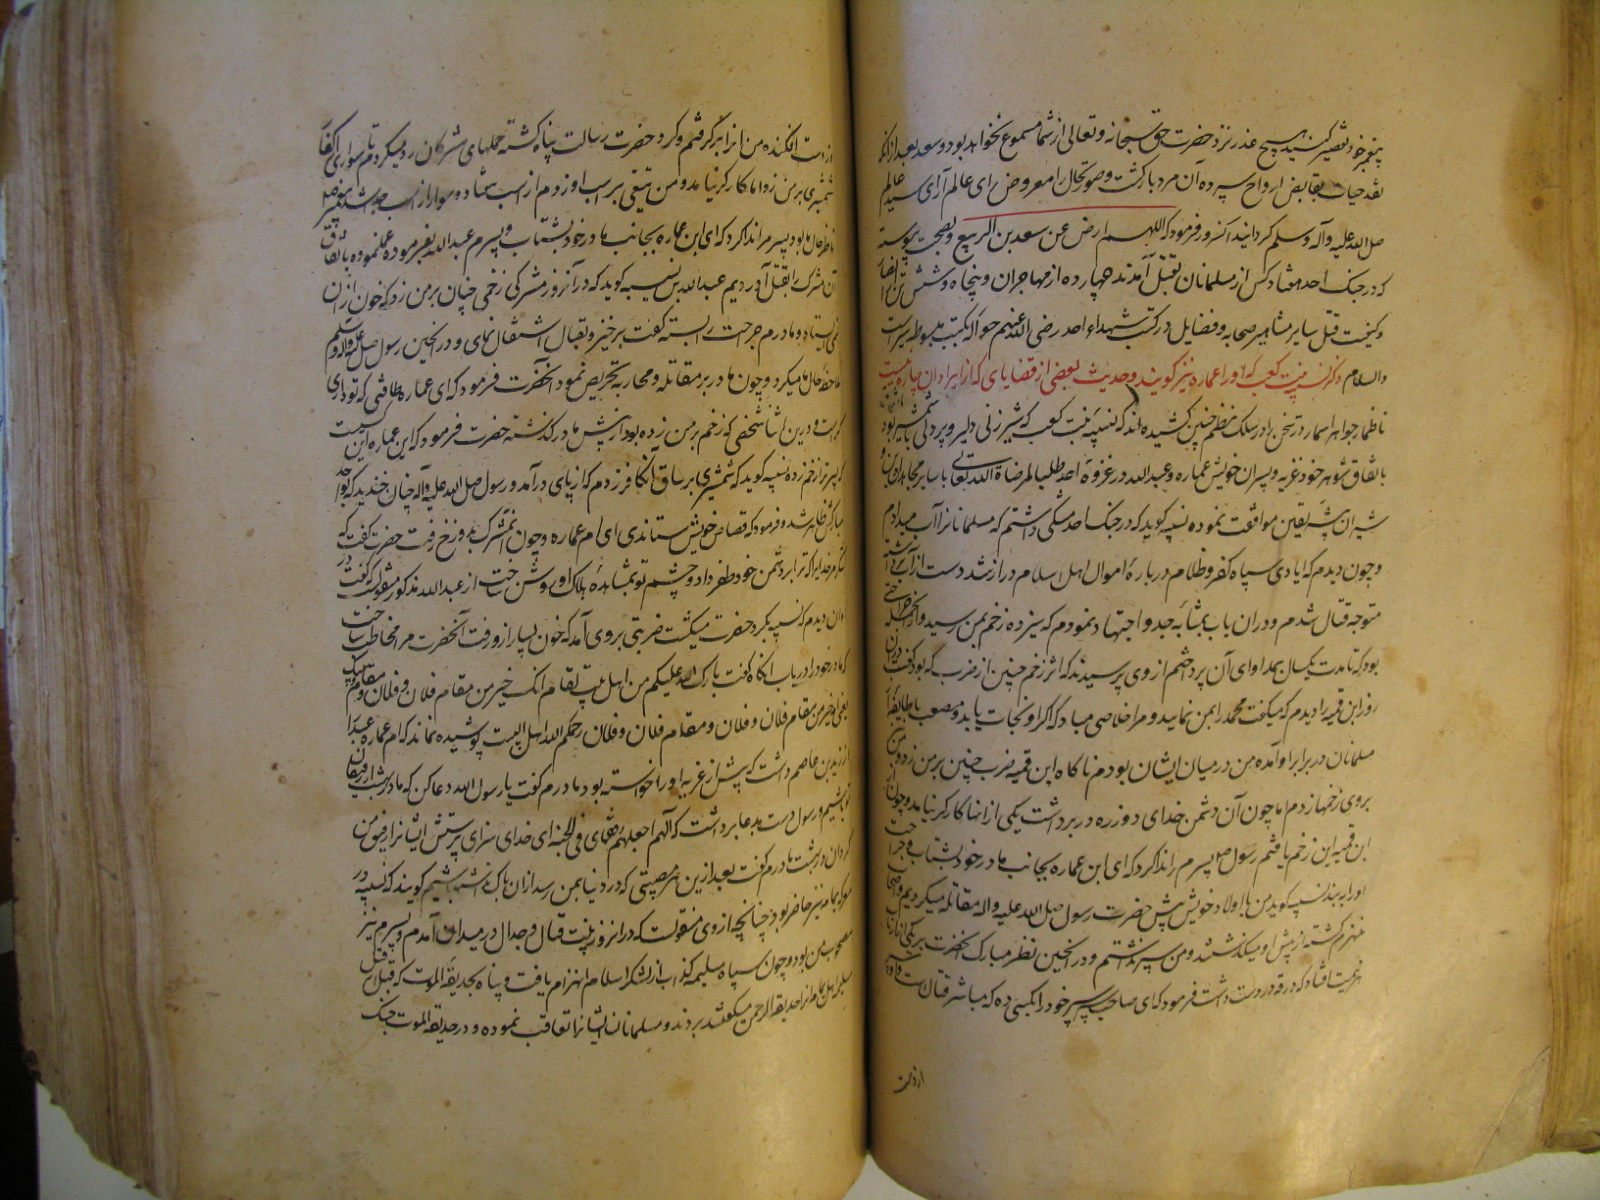 پیغمبر خود تقصیر کنید هیچ عذر نزد حضرت حق سبحانه و تعالی از شما مسموع نخواهد بود و سعد بعد از آنکه
نقد حیات بقابض ارواح سپرده آن مرد بازگشت و صورت حال را معروض رای عالم آرای سید عالم
صلی الله علیه و آله و سلم گردانید آنسرور فرمود که اللهم ارض عن سعد بن الربیع و بصحت پیوسته
که در جنک احد هفتاد کس از مسلمانان بقتل آمدند چهارده از مهاجران و پنجاه و شش تن از انصار
و کیفیت قتل سایر مشاهیر صحابه و فضایل در کتب شهداء احد رضی الله عنهم حواله بکتب مبسوط سیرست
والسلام ذکر نسیبه بنت کعب که او را عماره نیز گویند و حدیث بعضی از قضایای که از ایراد آن چاره نیست
ناظمان جواهر اسمار در سخن را در سلک نظم چنین کشیده‌اند که نسیبه بنت کعب که شیر زنی دلیر و پردلی با شمشیر بود
باتفاق شوهر خود غزیه و پسران خویش عماره و عبدالله در غزوه احد طلبا لمرضاة الله تعالی با سایر مجاهدان
موافقت نموده نسیبه گوید که در جنک احد مشکی داشتم که مسلمانانرا آب میدادم
و چون دیدم که ایادی سپاه کفر و ظلام درباره اموال اهل اسلام دراز شد دست از آب برداشته
متوجه قتال شدم و دران باب بمثابه جد و اجتهاد نمودم که سیزده زخم بمن رسید
بود که تا مدت یکسال بمداوای آن پرداختم از وی پرسیدند که اثر زخم چنین از ضرب که بود گفت دران
روز ابن قمیه را دیدم که میگفت محمد را بمن نمایید و مرا خلاصی مباد که اگر او نجات یابد و مصعب با طایفه از
مسلمانان در برابر او آمده من در میان ایشان بودم ناگاه ابن قمیه ضرب چنین بر من زد و من
بروی زخمها زدم اما چون آن دشمن خدای دو زره در بر داشت یکی از آنها کارگر نیامد و چون از
ابن قمیه این زخم یافتم رسول پسرم را ندا کرد که ای ابن عماره بجانب مادر خود بشتاب و جراحت
او را به بند نسیبه گوید من با اولاد خویش پیش حضرت رسول صلی الله علیه و اله مقاتله میکردیم
منهزم گشته از پیش او میگذشتند و من سپر نداشتم و درانحین نظر مبارک آنحضرت بر یکی از
هزیمت افتاد که درقه در دست داشت فرمود که ای صاحب سپر سپر خود را بکسی ده که مباشر قتالست
از دست
از دست افکنده من آنرا برگرفتم و گرد حضرت رسالت پناه گشته حملهای مشرکان رد میکردم تا سواری از کفار
شمشیری بر من زد اما کارگر نیامد و من تیغی بر اسب او زدم از اسب بیفتاد و سوار از اسب جدا شد پیغمبر صلعم
ناظر حال ما بود پسر مرا ندا کرد که ای ابن عماره بجانب مادر خود بشتاب و پسرم عبدالله بفرموده عمل نموده باتفاق
آن مشرک را بقتل آوردیم عبدالله بن نسیبه گوید که در آنروز مشرکی زخمی چنان بر من زد که خون از آن
نمی ایستاد و مادرم جراحت را بسته گفت برخیز و بقتال اشتغال نمای و در آنحین رسول صلی الله علیه و آله و سلم
ملاحظه حال ما میکرد و چون مادر بر مقاتله و محاربه تحریص نمود آنحضرت فرمود که ای عماره طاقتی که تو داری
کراست و درین اثنا شخصی که زخم بر من زده بود از پیش مادر گذشته حضرت فرمود که ای عماره این آنست
که پسر ترا زخم زده نسیبه گوید که شمشیری بر ساق آن کافر زدم که از پای درآمد و رسول صلی الله علیه و آله چنان خندید که نواجذ
مبارکش ظاهر شد و فرمود که قصاص خویش ستاندی ای ام عماره و چون آن مشرک بدوزخ رفت حضرت گفت که
شکر مر خدایرا که ترا بر دشمن خود ظفر داد و چشم تو بمشاهده هلاک او روشن ساخت از عبدالله مذکور منقولست که گفت در
آن اوان دیدم که نسیبه بگرد حضرت میگشت ضربتی بروی آمد که خون بسیار از و رفت آنحضرت مرا مخاطب ساخت
که مادر خود را دریاب آنگاه گفت بارک الله علیکم من اهل بیت لمقام امک خیر من مقام فلان و فلان و مقامک
یعنی خیر من مقام فلان و فلان و مقام فلان و فلان رحمکم الله اهل البیت پوشیده نماند که ام عماره عبدالله را
از زید بن عاصم داشت که پیش از غزیه او را خواسته بود مادرم گفت یا رسول الله دعا کن که ما در بهشت از رفیقان
تو باشیم و رسول دست بدعا برداشت که اللهم اجعلهم رفقای فی الجنه ای خدای سزای پرستش ایشانرا رفیق من
گردان در بهشت مادرم گفت بعد ازین هر مصیبتی که در دنیا بمن رسد از آن باک نداشته باشیم گویند که نسیبه در
معرکه یمامه نیز حاضر بود چنانچه از وی منقولست که در آنروز به نیت قتال و جدال در میدان آمدم و پسرم نیز
مصحوب من بود و چون سپاه مسیلمه کذاب از لشکر اسلام انهزام یافت و پناه بحدیقة الموت که قبل از قتل
مسیلمه اهل یمامه آنرا حدیقة الرحمن میگفتند بردند و مسلمانان ایشانرا تعاقب نموده و در حدیقة الموت جنک